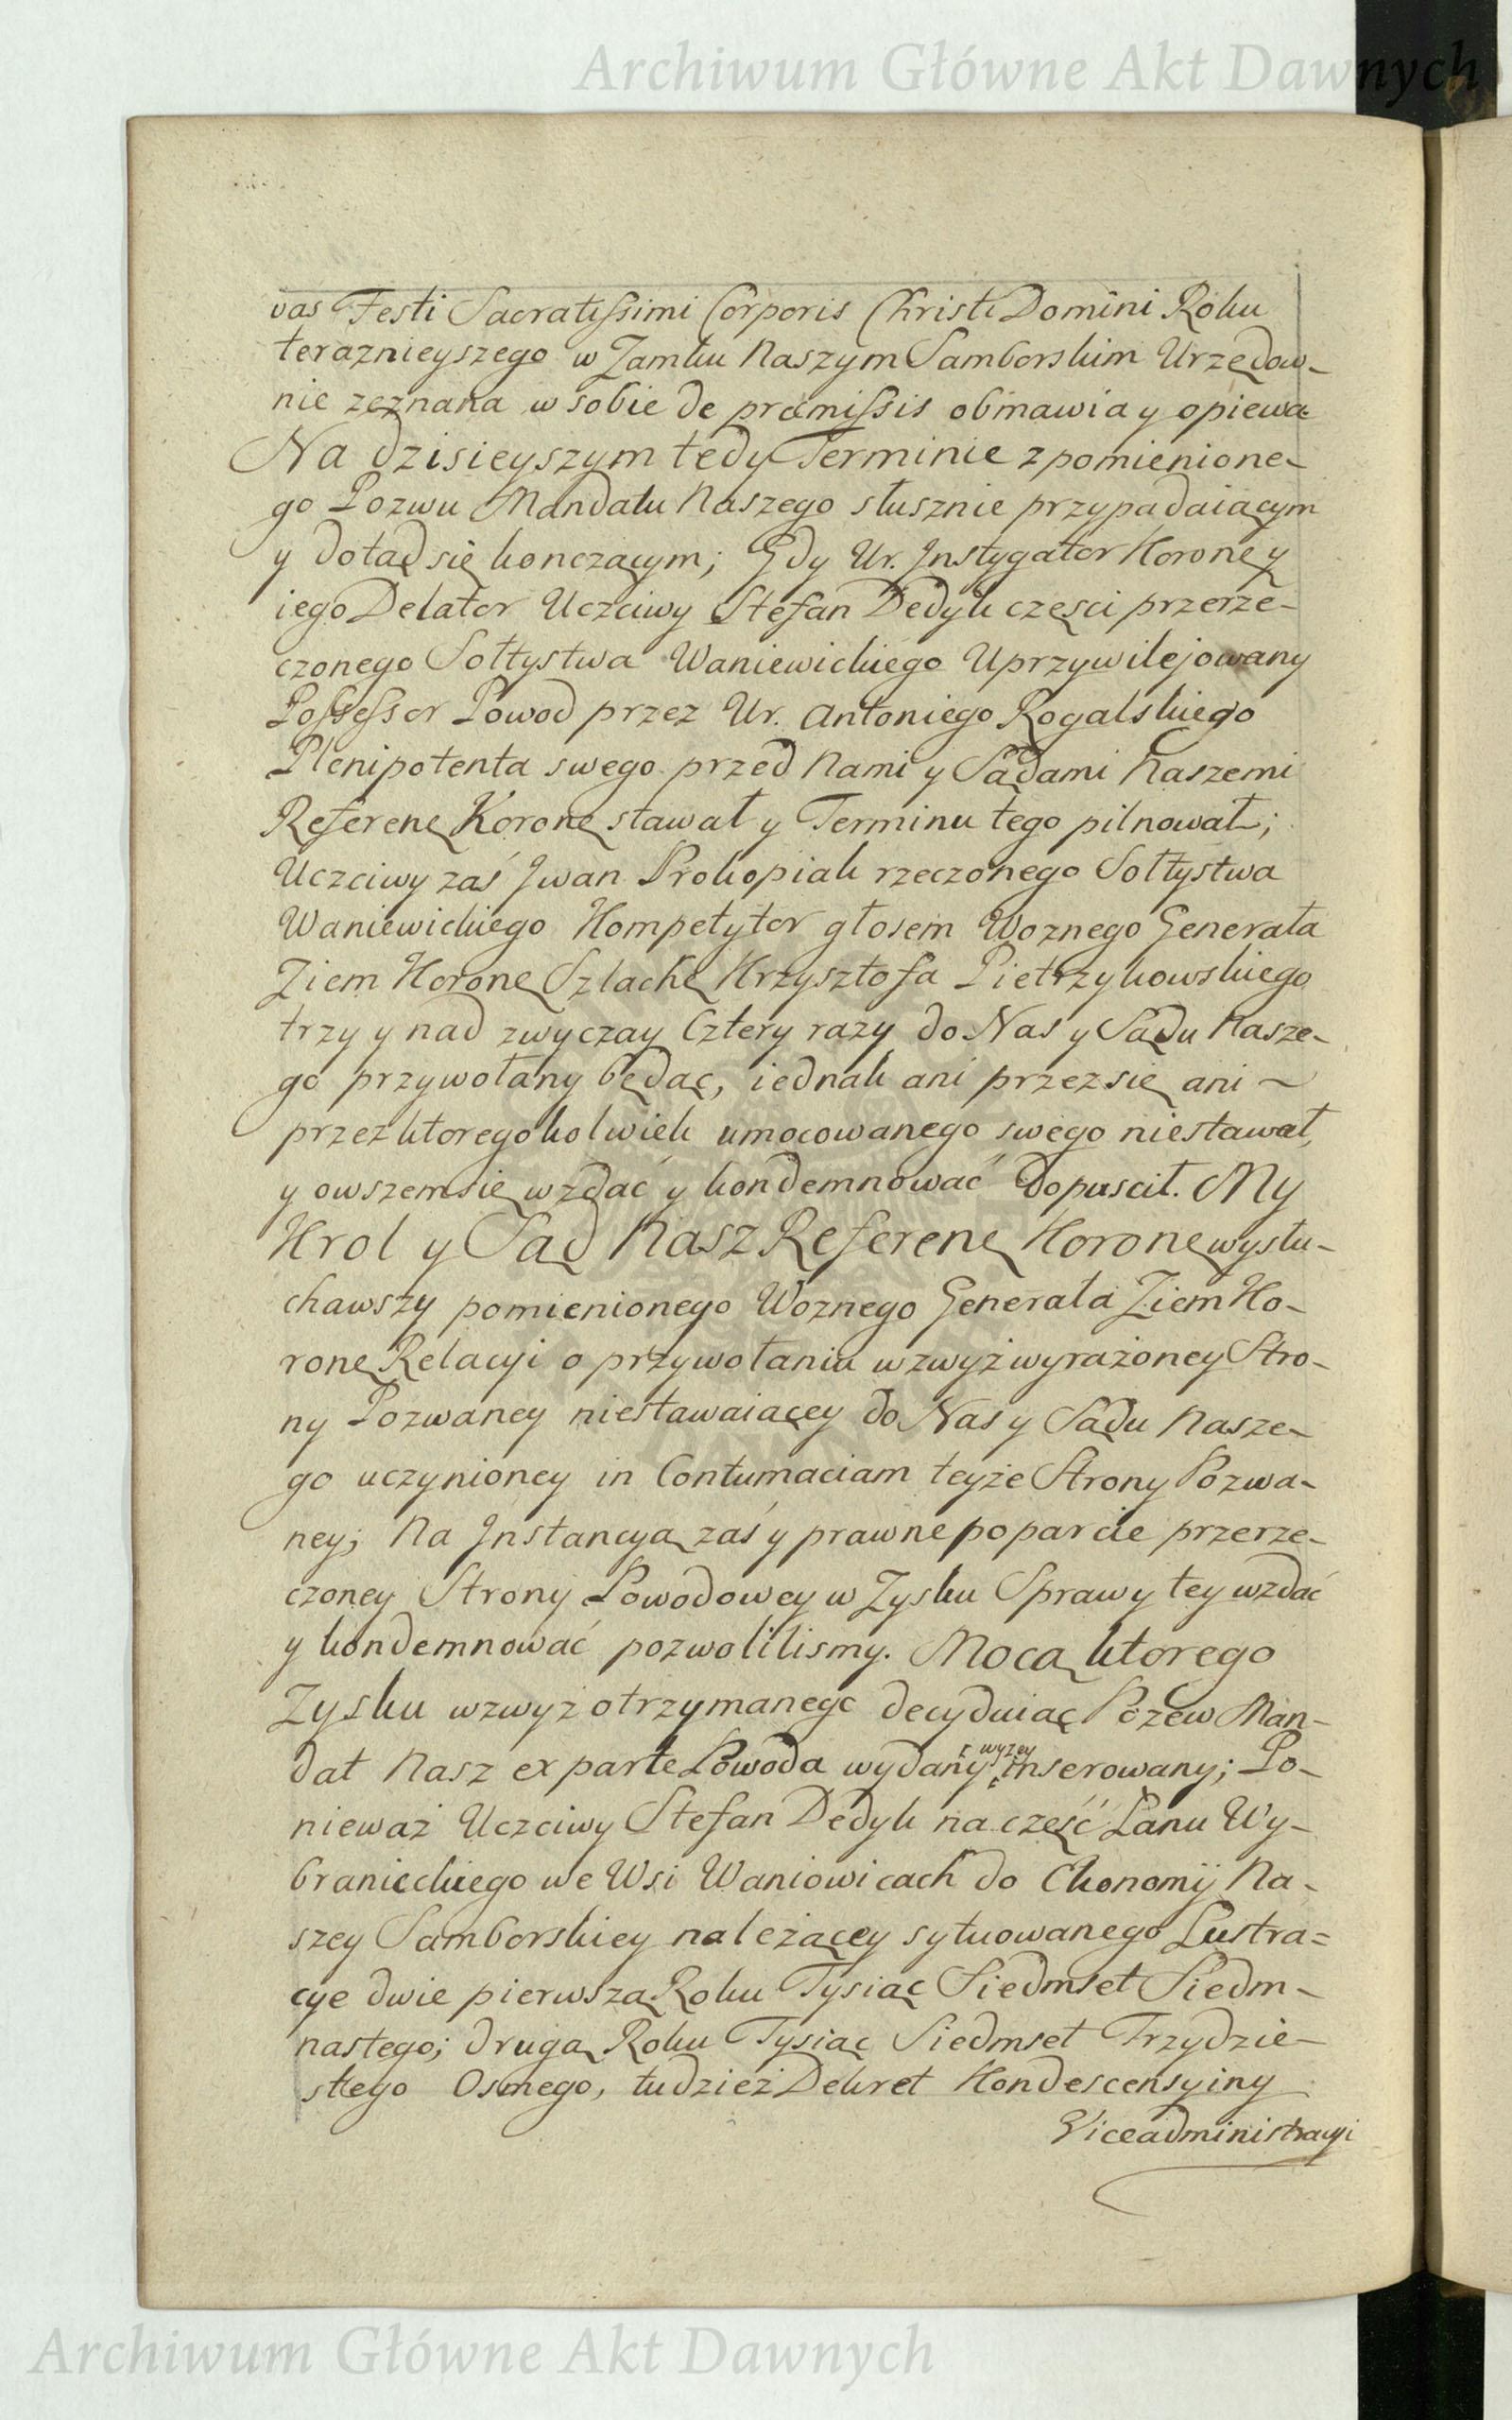 Archiwum Główne Akt Dawnych
vas Festi Sacratissimi Corporis Christi Domini Roku
teraznieyszego w Zamku Naszym Samborskim Urzędow-
nie zeznana w sobie de præmissis obmawia y opiewa
Na dzisieyszym tedy Terminie z pomienione-
go Pozwu Mandatu Naszego słusznie przypadaiącym
y dotąd się konczącym; Gdy Ur. Instygator Koronęy
iego Delator Uczciwy Stefan Dedyk częsci przerze-
czonego Sołtystwa Waniewickiego Uprzywilejowany
Possessor Powod przez Ur. Antoniego Rogalskiego
Plenipotenta swego przed Nami y Sądami Naszemi
Referenę Koronę stawał y Terminu tego pilnował;
Uczciwy zaś Jwan Prokopiak rzeczonego Sołtystwa
Waniewickiego Kompetytor głosem Woznego Generała
Ziem Koronę Szlachę Krzysztofa Pietrzykowskiego
trzy y nad zwyczay Cztery razy do Nas y Sądu Nasze-
go przywołany będąc, iednak ani przez się ani ~
przez ktoregokolwiek umocowanego swego niestawał,
y owszem się wzdać y kondemnować dopuscił. My
Krol y Sąd Nasz Referenę Koronę wysłu-
chawszy pomienionego Woznego Generała Ziem Ko-
ronę Relacyi o przywołaniu wzwyż wyrażoney Stro-
ny Pozwaney niestawaiącey do Nas y Sądu Nasze-
go uczynioney in Contumaciam teyże Strony Pozwa-
ney; Na Jnstancyą zaś y prawne poparcie przerze-
czoney Strony Powodowey w Zysku Sprawy tey wzdać
y kondemnować pozwolilismy. Mocą ktorego
Zysku wzwyż otrzymanego decyduiąc Pozew Man-
dat Nasz ex parte Powoda wydany wyzey inserowany; Po-
nieważ Uczciwy Stefan Dedyk na część Łanu Wy-
branieckiego we Wsi Waniowicach do Ekonomij Na-
szey Samborskiey należącey sytuowanego Lustra=
cye dwie pierwszą Roku Tysiąc Siedmset Siedm-
nastego; drugą Roku Tysiąc Siedmset Trzydzie-
stego Osmego, tudzież Dekret Kondescensyiny
Viceadministracyi
Archiwum Główne Akt Dawnych